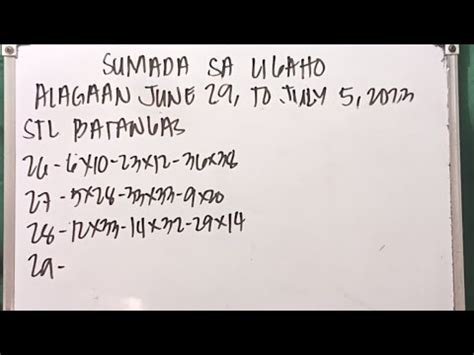 SUMADA SA LIGAHO
ALAGAAN JUNE 29, TO JULY 5, 2023
STL BATANGAS
26-6x10-23x12-36x38
27-5x28-33x33-9x20
28-12x33-14x32-29x14
29-